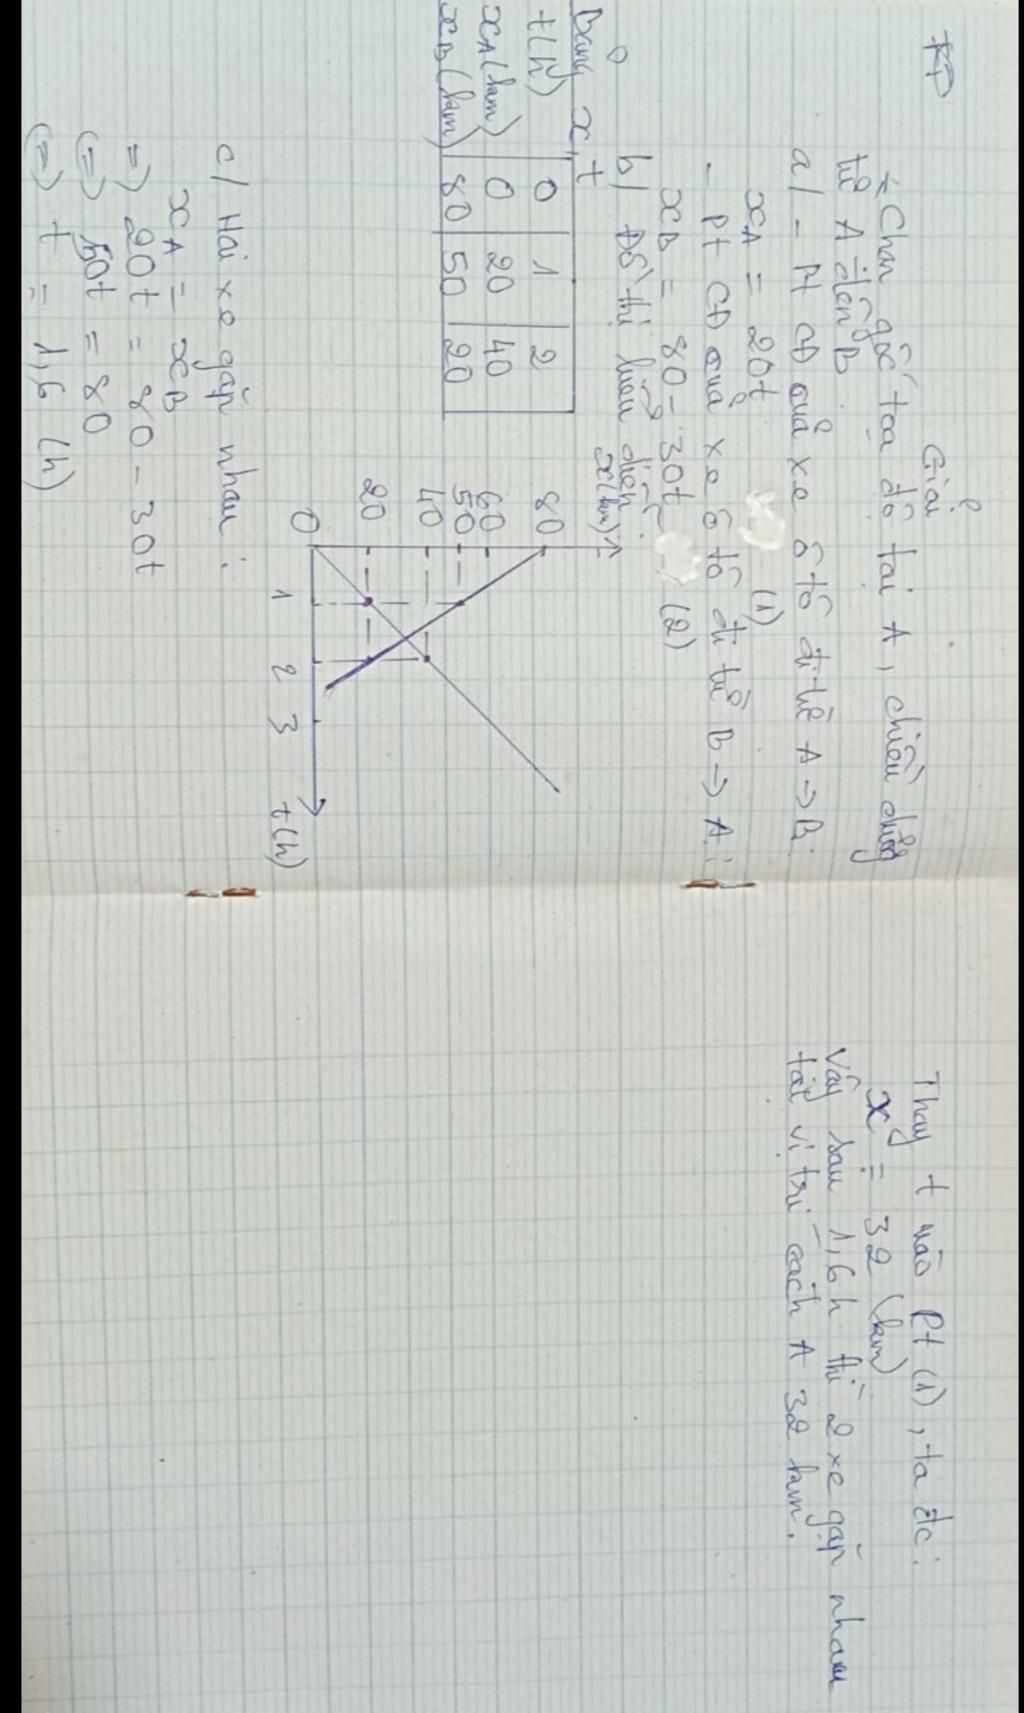 Giải
- Chọn gốc tọa độ tại A, chiều
từ A đến B
a/ - Pt CĐ của xe ô tô đi từ A → B:
xA = 20t (1)
- Pt CĐ của xe ô tô đi từ B → A:
xB = 80 - 30t (2)
b/ Đồ thị biểu diễn:
Bảng x, t
t(h) 0 1 2
xA (km) 0 20 40
xB (km) 80 50 20
x(km)
80
60
50
40
20
0 1 2 3 t(h)
c/ Hai xe gặp nhau:
xA = xB
=> 20t = 80 - 30t
(=) 50t = 80
(=) t = 1,6 (h)
Thay t vào Pt (1), ta đc:
x = 32 (km)
Vậy sau 1,6h thì 2 xe gặp nhau
tại vị trí cách A 32 km.